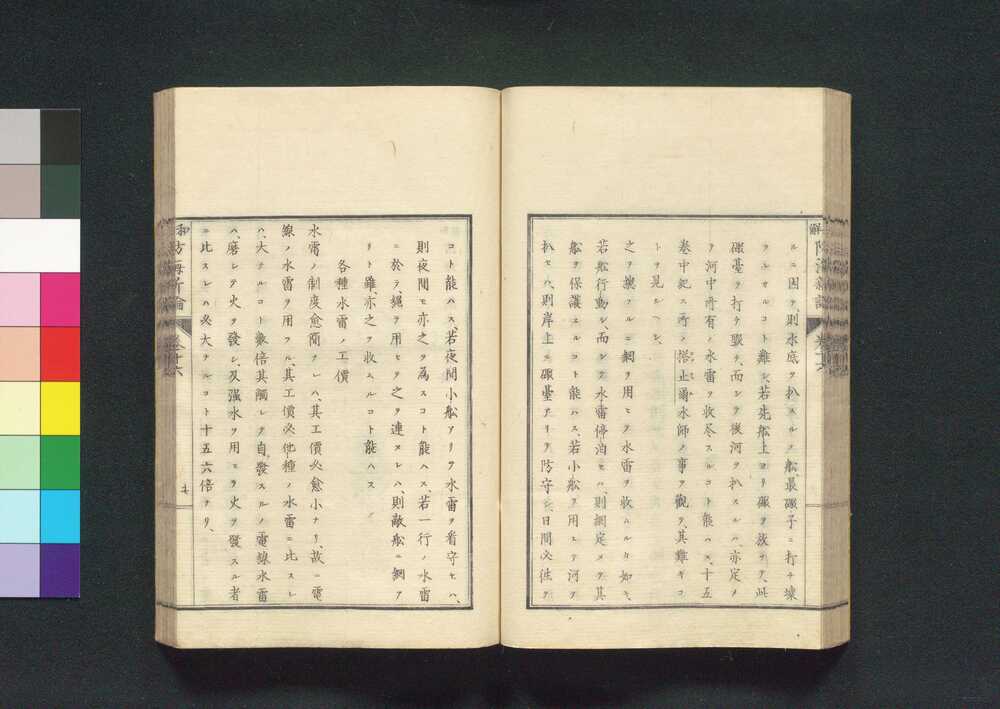 ルニ因テ、則水底ヲ扒スルノ船、最礮子ニ打チ壊
ラレサルコト難シ、若先船上ヨリ礮ヲ放チテ、此
礮臺ヲ打チ毀チ、而シテ後河ヲ扒スルハ、亦定メ
テ河中所有ノ水雷ヲ收尽スルコト能ハス、十五
卷中紀ス所ノ搭止爾水師ノ事ヲ觀テ、其難キコ
トヲ見ルヘシ、
之ヲ撈フルニ網ヲ用ヒテ水雷ヲ收ムルカ如キ、
若船行動シ、而シテ水雷停泊セハ、則網定メテ其
船ヲ保護スルコト能ハス、若小船ヲ用ヒテ河ヲ
扒セハ、則岸上ニ礮臺アリテ防守シ、日間必往ク
コト能ハス、若夜間小船アリテ水雷ヲ看守セハ、
則夜間モ亦之ヲ為スコト能ハス、若一行ノ水雷
ニ於テ、繩ヲ用ヒテ之ヲ連ヌレハ、則敵船ニ網ア
リト雖、亦之ヲ收ムルコト能ハス
各種水雷ノ工價
水雷ノ制度愈簡ナレハ、其工價必愈小ナリ、故ニ電
線ノ水雷ヲ用フル、其工價必他種ノ水雷ニ比スレ
ハ、大ナルコト數倍其觸レテ自發スルノ電線水雷
ハ、磨シテ火ヲ發シ、及强水ヲ用ヒテ火ヲ發スル者
ニ比スレハ必大ナルコト十五六倍ナリ、
防海新論
卷十六